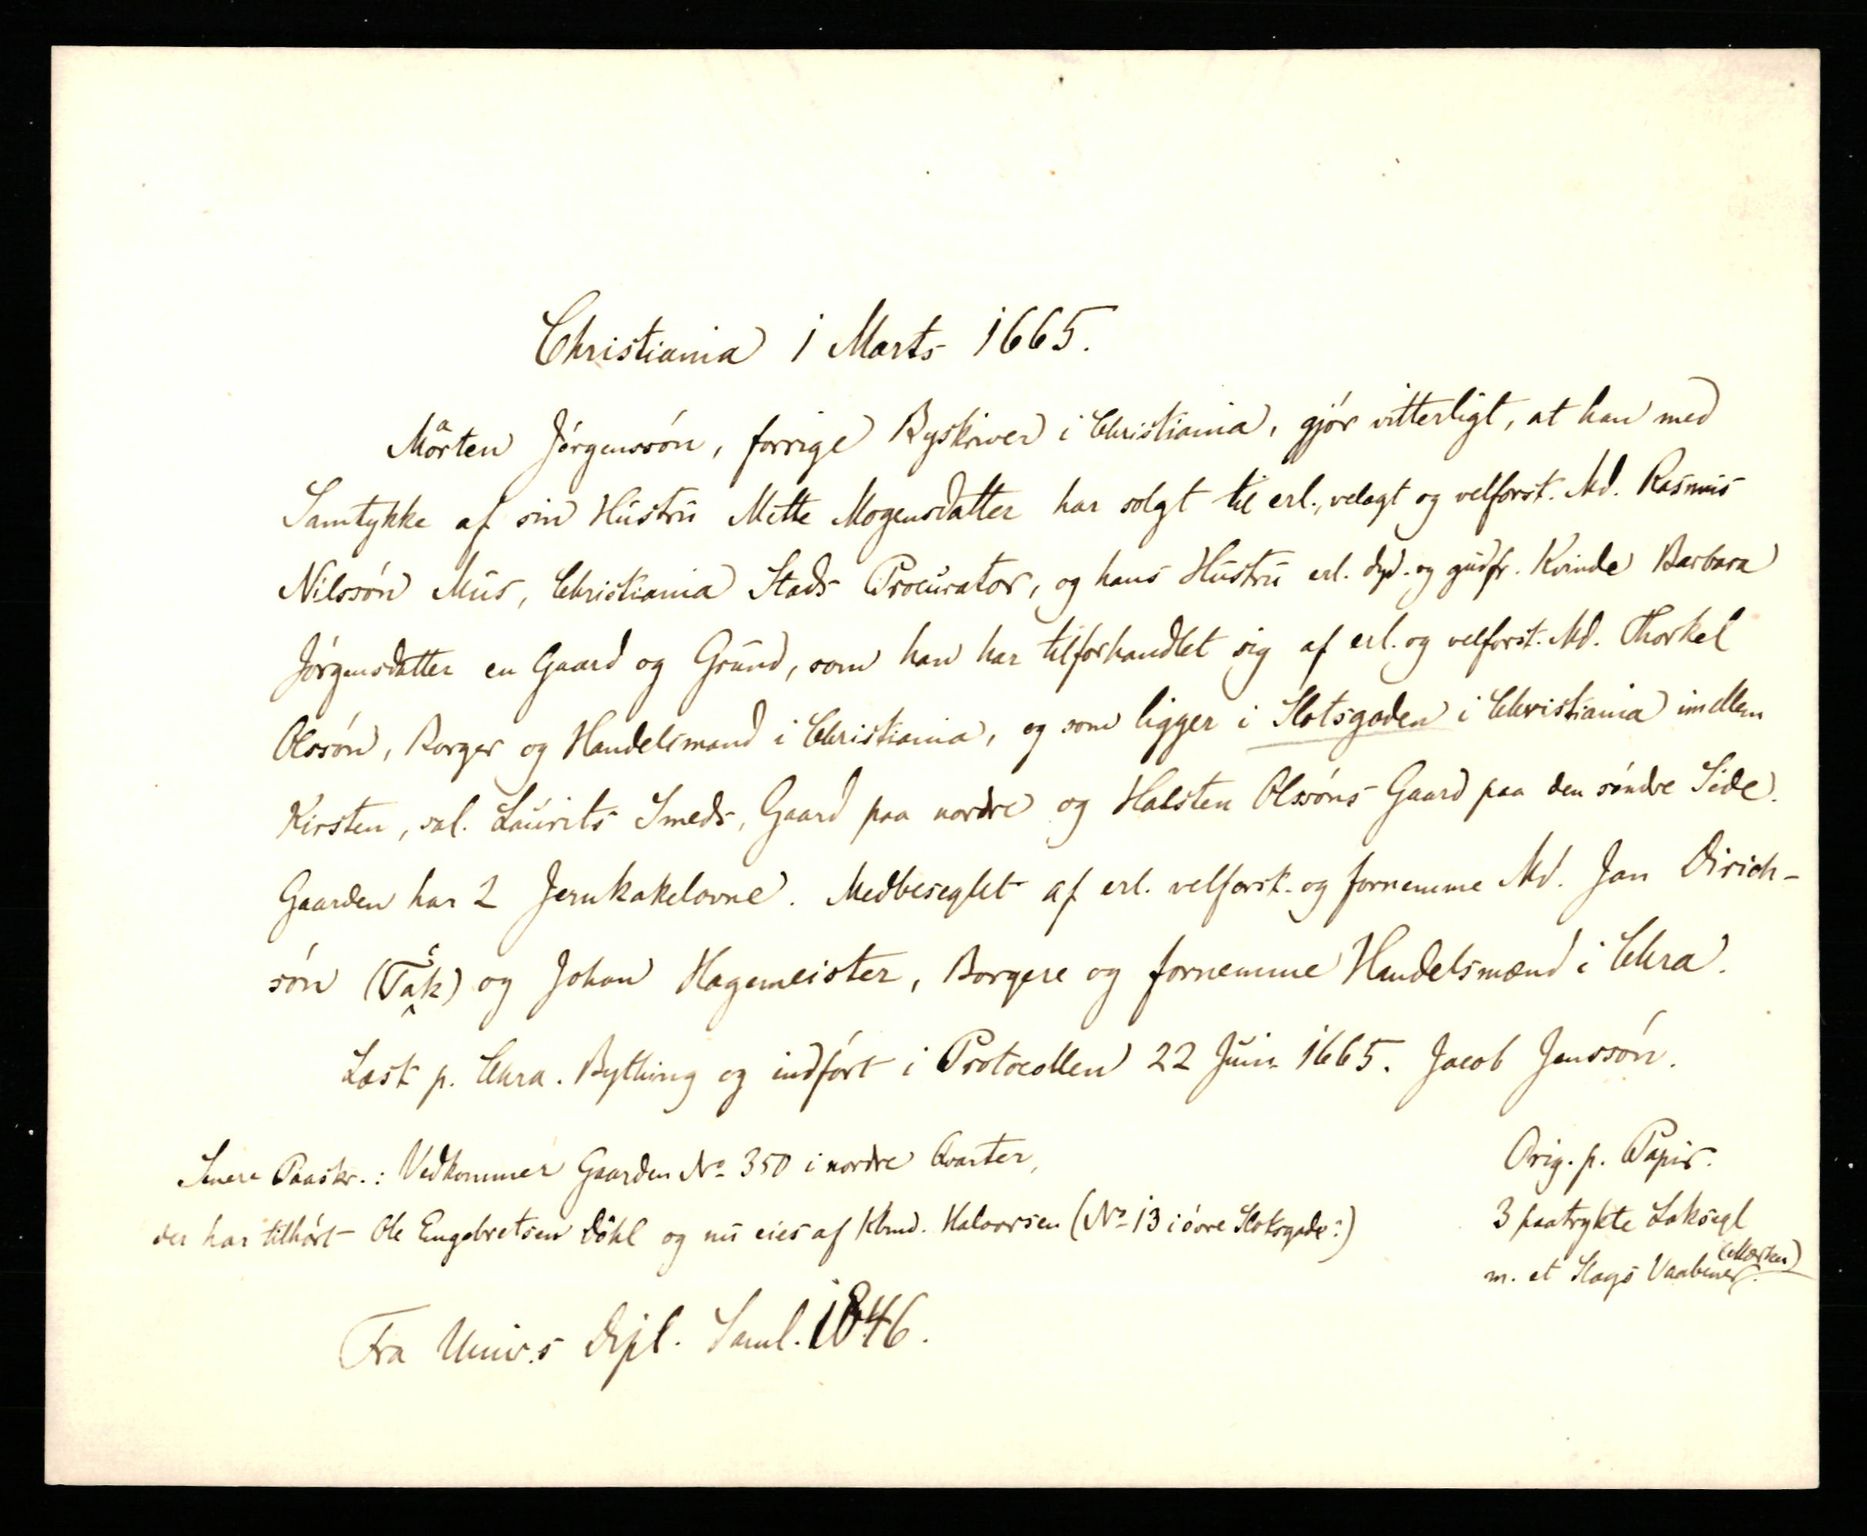 Christiania 1 Marts 1665.
Mårten Jörgenssön, forrige Byskriver i Christiania, gjör vitterligt, at han med
Samtykke af sin Hustru Mette Mogensdatter har solgt til erl., velagt og velforst. Md. Rasmus
Nilssön Mus, Christiania Stads Procurator, og hans Hustru erl. dyd. og gudfr. Kvinde Barbara
Jörgensdatter en Gaard og Grund, som han har tilforhandlet sig af erl. og velforst. Md. Thorkel
Olssön, Borger og Handelsmand i Christiania, og som ligger i Slotsgaden i Christiania imellem
Kirsten, sal. Laurits Smeds, Gaard paa nordre og Halsten Olssöns Gaard paa den söndre Side.
Gaarden har 2 Jernkakelovne. Medbeseglet af erl. velforst. og fornemme Md. Jan Dirich-
sön (Tak) og Johan Hagemeister, Borgere og fornemme Handelsmænd i Chra.
Læst p. Chra. Bything og indfört i Protocollen 22 Juni 1665. Jacob Jenssön.
Senere Paaskr.: Vedkommer Gaarden No 350 i nordre Qvarter,
der har tilhört Ole Engebretsen Döhl og nu eies af Kbmd. Halvorsen (No 13 i övre Slotsgade:)
Orig. p. Papir.
3 paatrykte Laksegl
(Morten)
m. et Slags Vaabener.
Fra Univ.s Dipl. Saml. 1846.